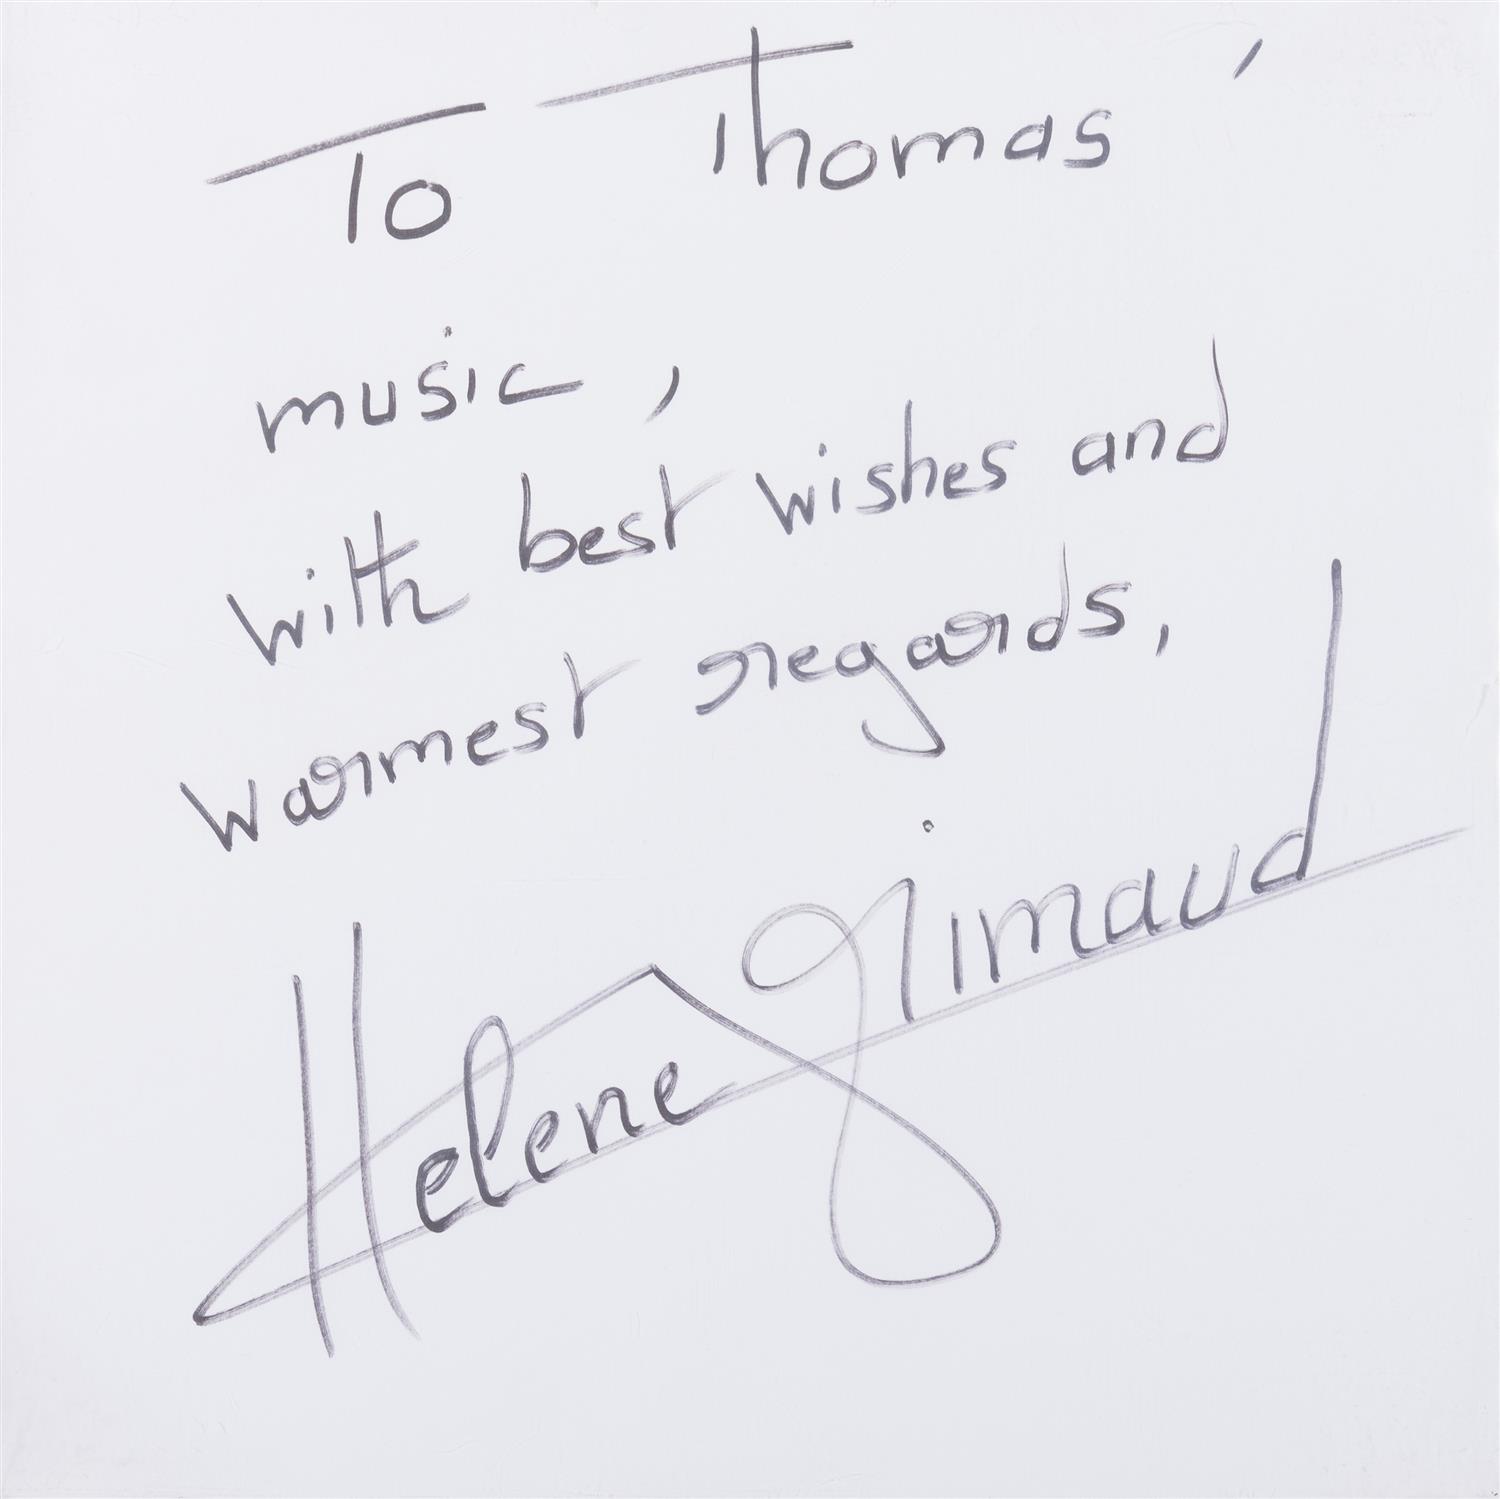 To Thomas'
music,
with best wishes and
warmest regards,
Helene Grimaud